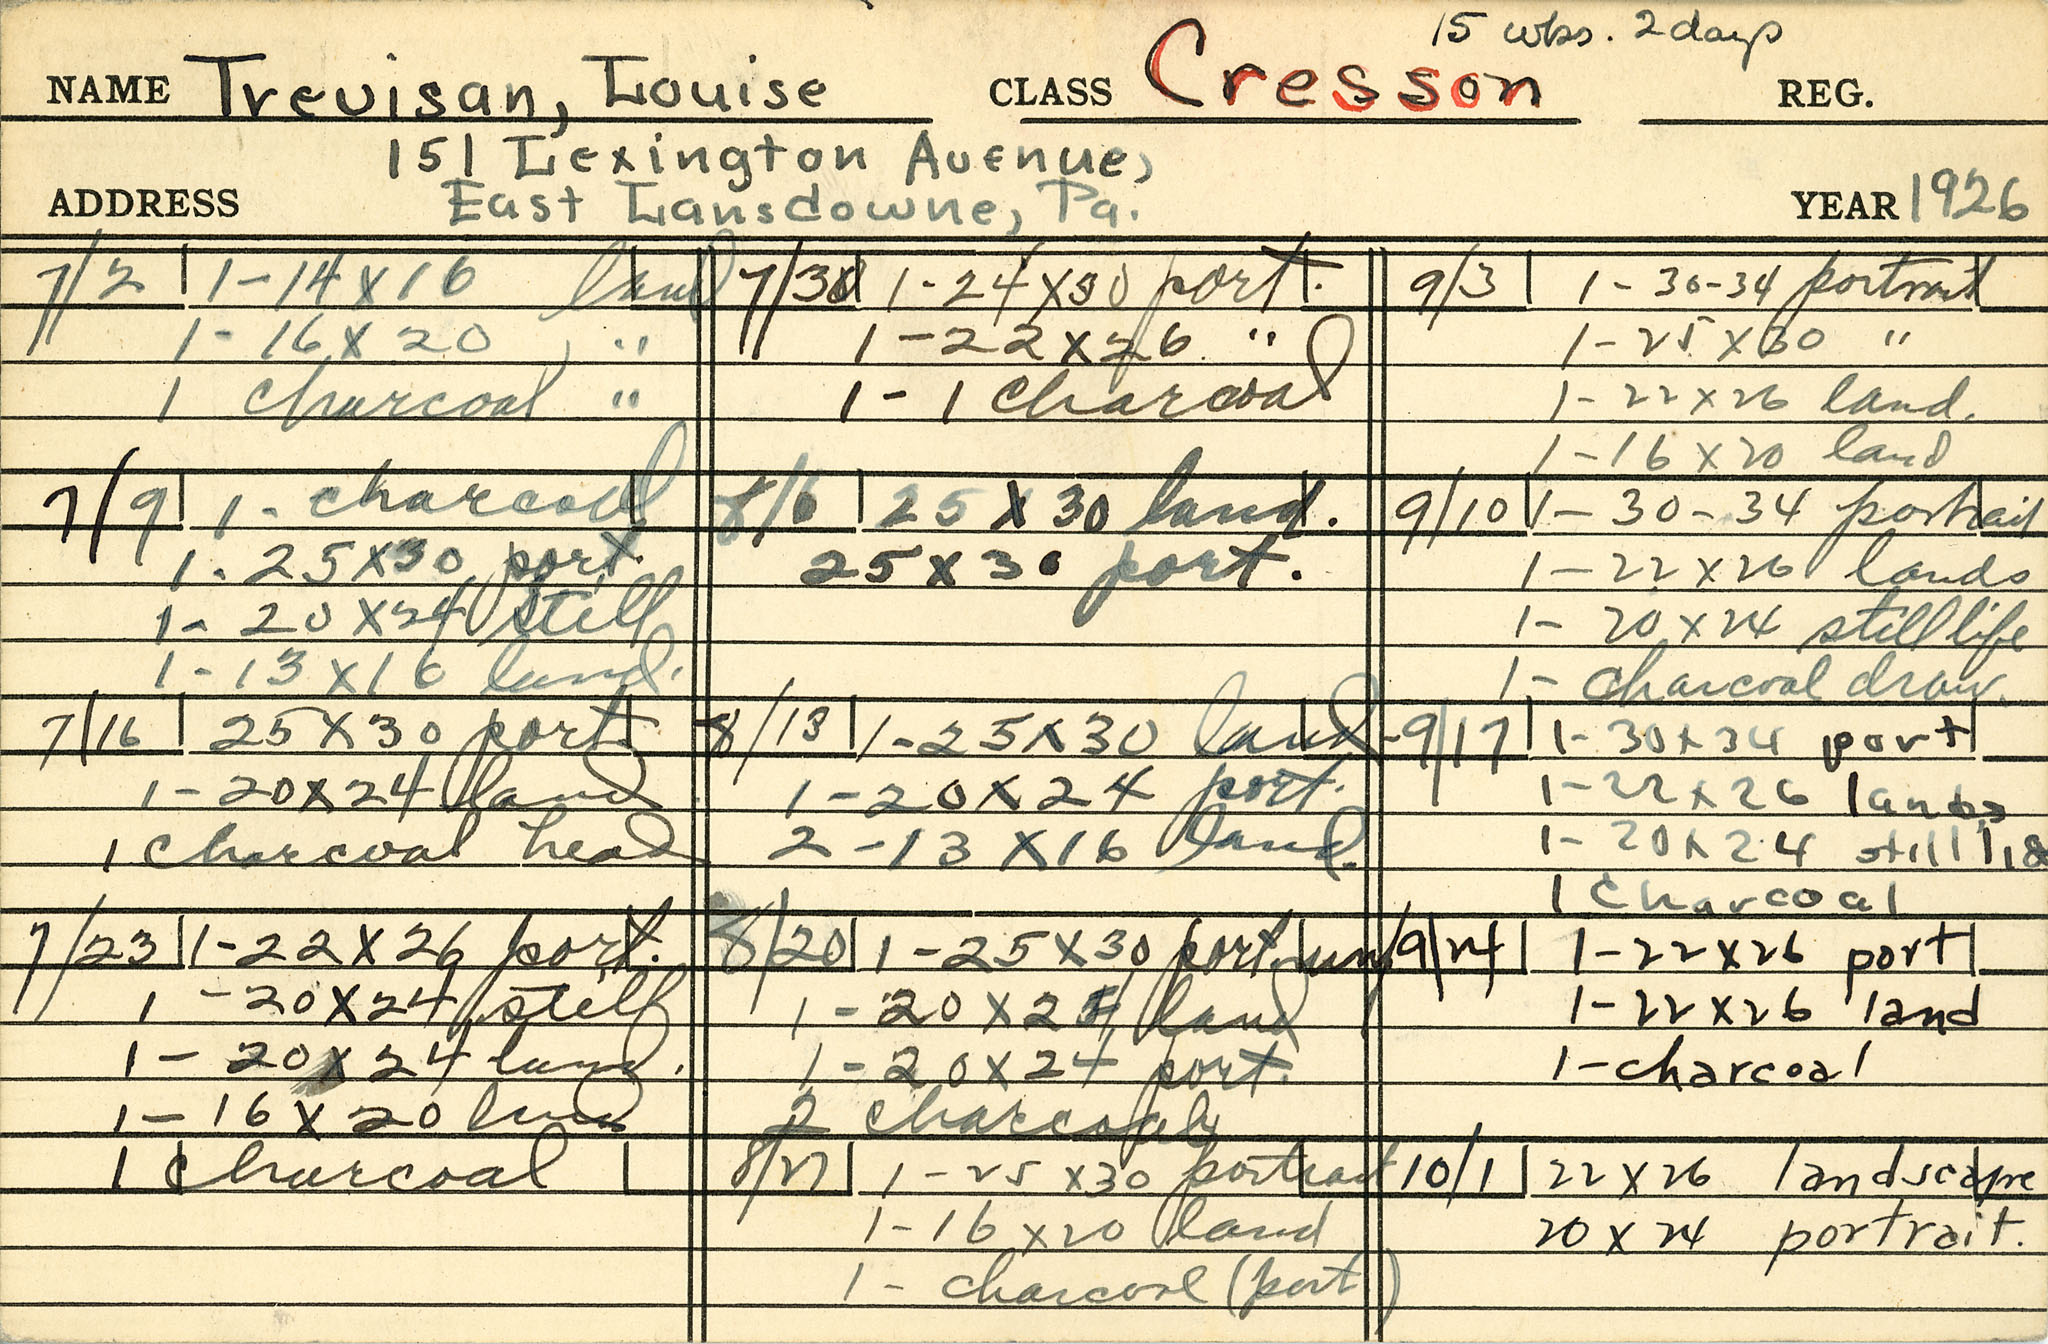 15 wks. 2 days
NAME Trevisan, Louise CLASS Cresson REG.
151 Lexington Avenue,
ADDRESS East Lansdowne, Pa. YEAR 1926
7/2 1-14 x 16 land
1- 16 x 20 "
1 charcoal "
7/9 1- charcoal
1- 25 x 30 port.
1- 20 x 24 still
1-13 x 16 land.
7/16 25 x 30 port.
1-20 x 24 land
1 charcoal head
7/23 1-22 x 26 port.
1 -20 x 24 still
1- 20 x 24 land.
1-16 x 20 land
1 charcoal
7/30 1-24 x 30 port.
1-22 x 26 "
1-1 charcoal
8/6 25 x 30 land.
25 x 30 port.
8/13 1-25 x 30 land
1-20 x 24 port.
2-13 x 16 land.
8/20 1-25 x 30 port. un
1-20 x 24 land
1-20 x 24 port.
2 charcoals
8/27 1-25 x 30 portrait
1-16 x 20 land
1- charcoal (port)
9/3 1-30-34 portrait
1-25 x 30 "
1-22 x 26 land.
1-16 x 20 land
9/10 1-30-34 portrait
1-22 x 26 lands
1- 20 x 24 still life
1- charcoal draw.
9/17 1-30 x 34 port
1-22 x 26 lands
1-20 x 24 still
1 charcoal
9/24 1-22 x 26 port
1-22 x 26 land
1-charcoal
10/1 22 x 26 landscape
20 x 24 portrait.